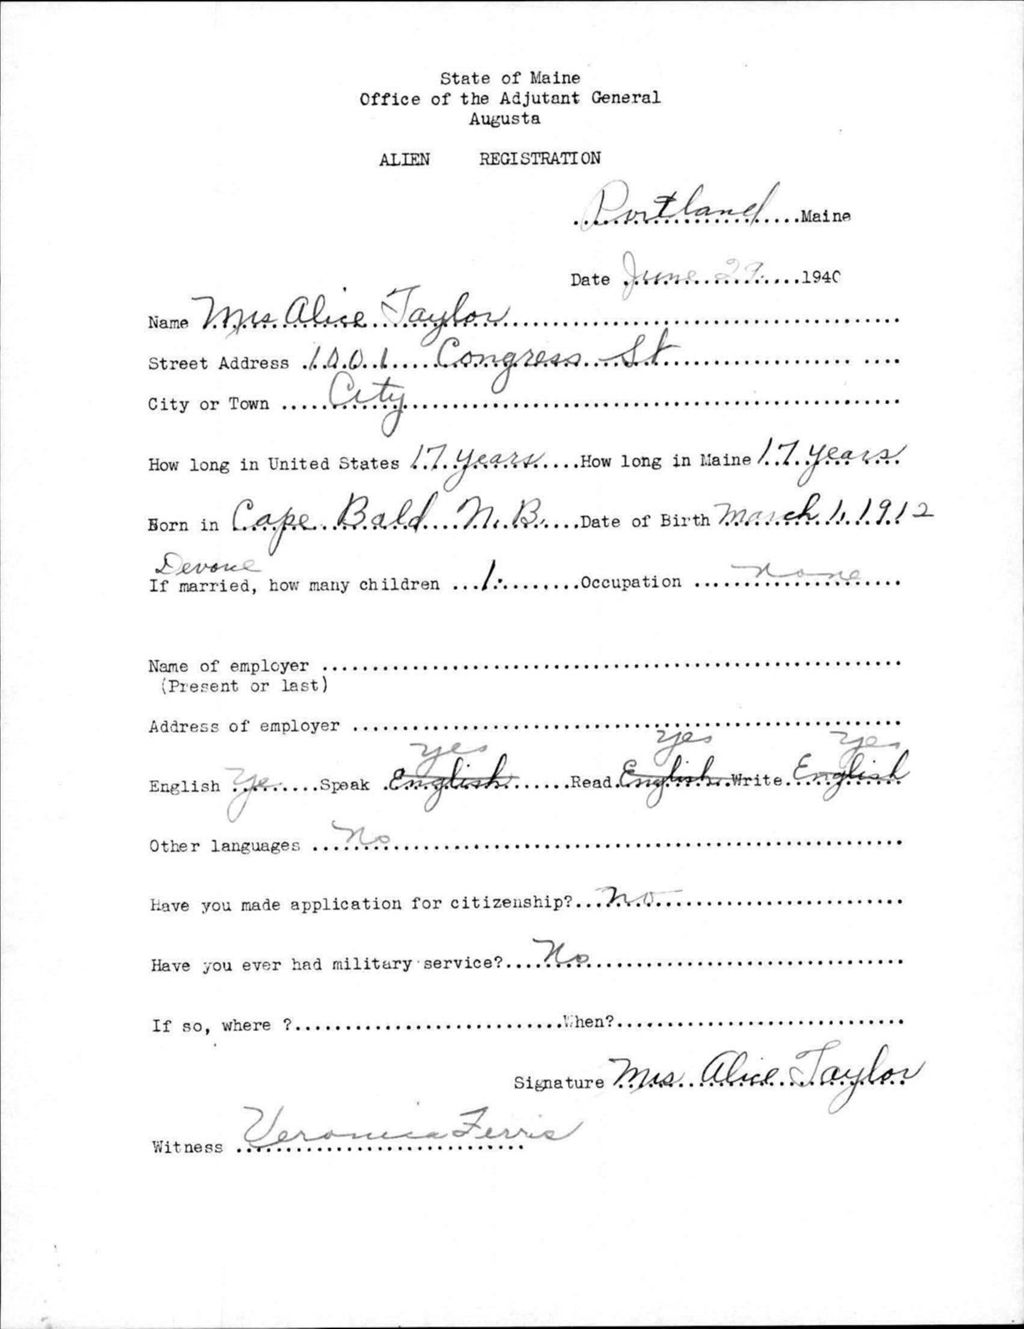 State of Maine
Office of the Adjutant General
Augusta
ALIEN REGISTRATION
Portland Maine
Date June 27. 1940
Name Mrs Alice Taylor
Street Address 1001 Congress St
City or Town City
How long in United States 17 years How long in Maine 17 years
Born in Cape Bald N.B. Date of Birth March 1, 1912
If married, how many children 1. Occupation none
Name of employer
(Present or last)
Address of employer
yes yes yes
English Yes Speak English Read English Write English
Other languages No
Have you made application for citizenship? No
Have you ever had military service? No
If so, where ? When?
Signature Mrs. Alice Taylor
Witness Veronica Ferris